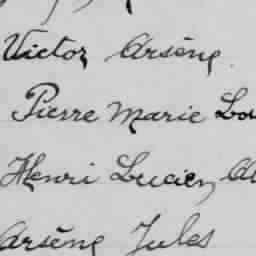 Victor Arsène
Pierre Marie
Henri Lucien
Arsène Jules